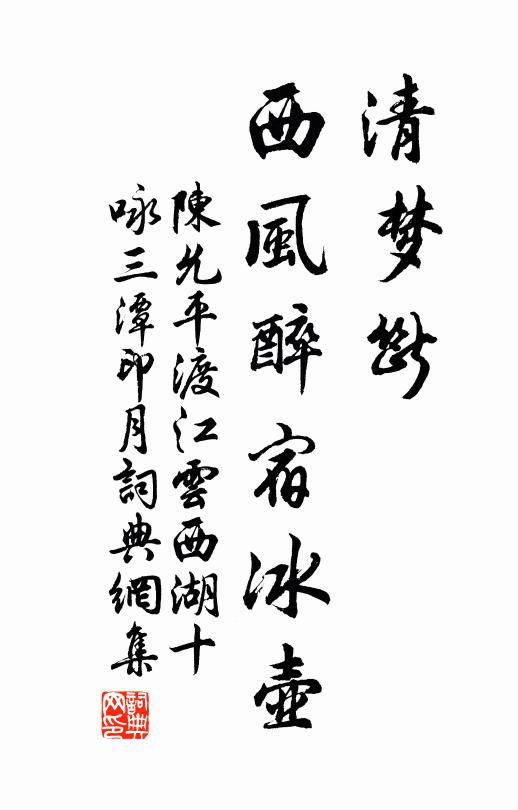 清梦斷
西風醉宿冰壺
陳允平渡江雲西湖十
咏三潭印月詞典網集
詞典网印